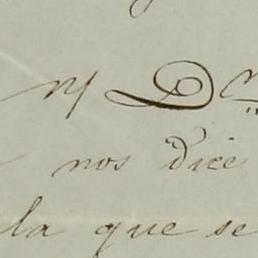 y Dn
nos dice
la que se